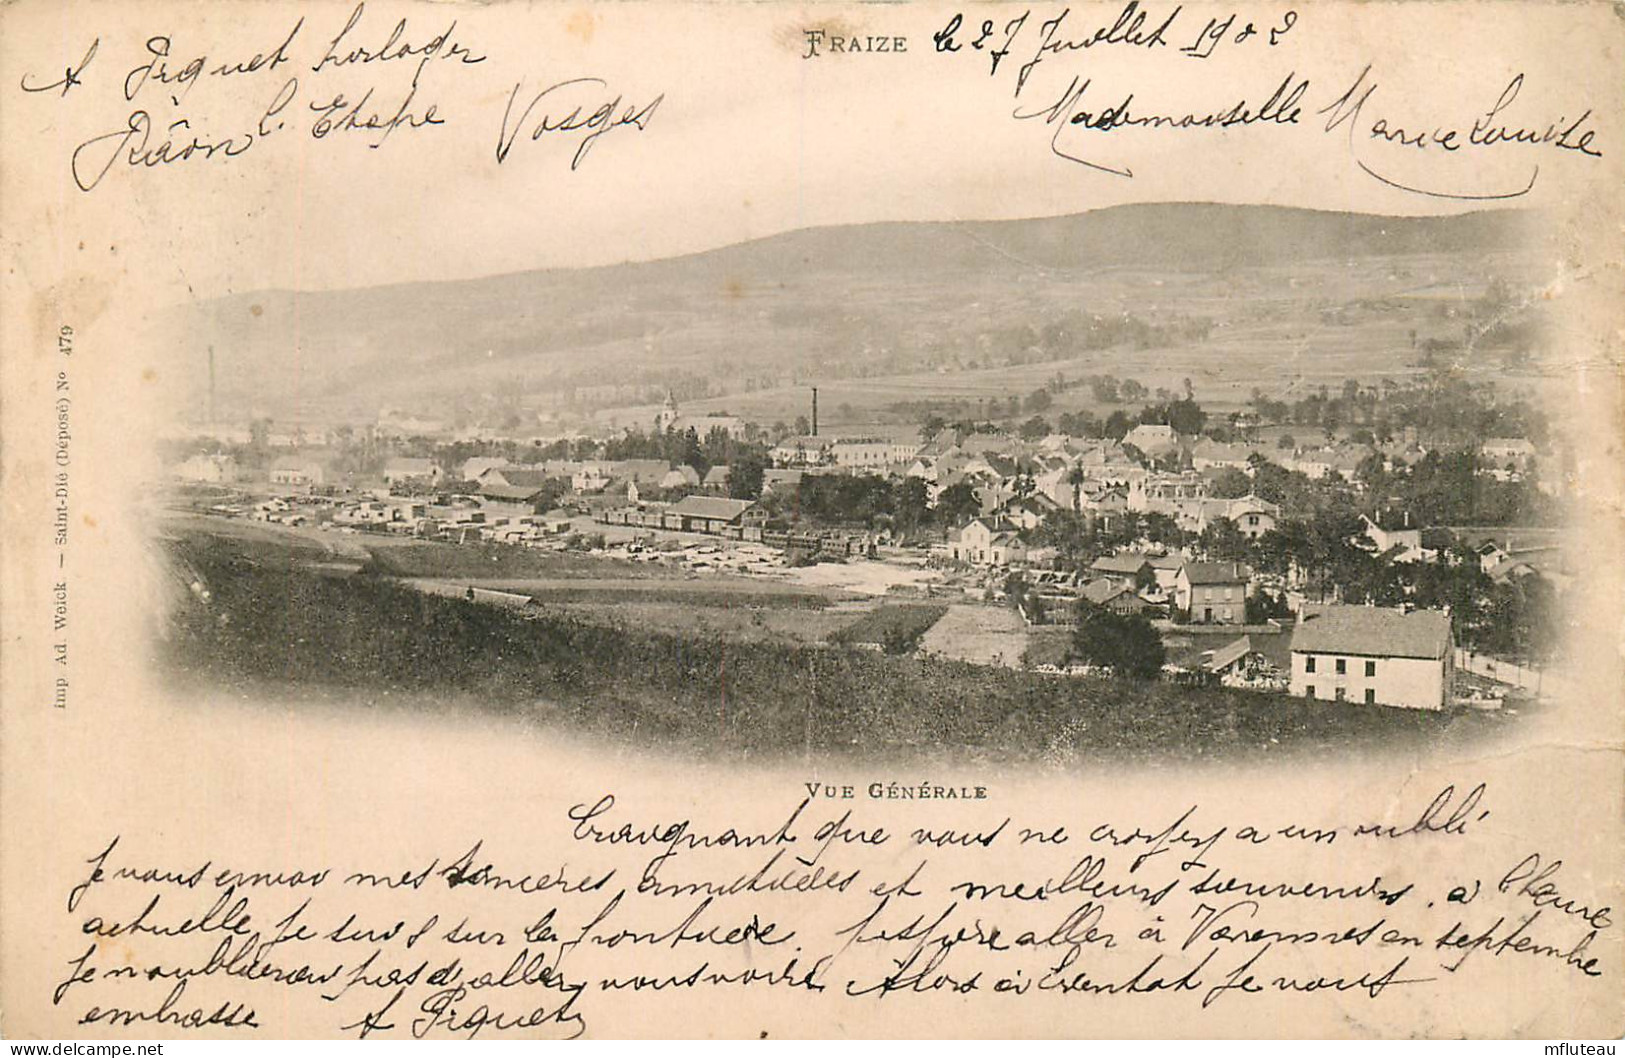 A Piquet horloger
Râon l. Etape Vosges
FRAIZE le 27 Juillet 1902
Mademoiselle Marie Louise
Imp Ad. Weick — Saint-Dié (Déposé) No 479
VUE GÉNÉRALE
Craignant que vous ne croyez a un oubli
Je vous envoi mes sincères amitiées et meilleurs souvenirs. a l'heure
actuelle je suis sur la frontière. J'espère aller à Varennes en septembre
Je n'oublierai pas d'aller vous voir. Alors à bientot Je vous
embrasse A Piquet
mfluteau
www.delcampe.net